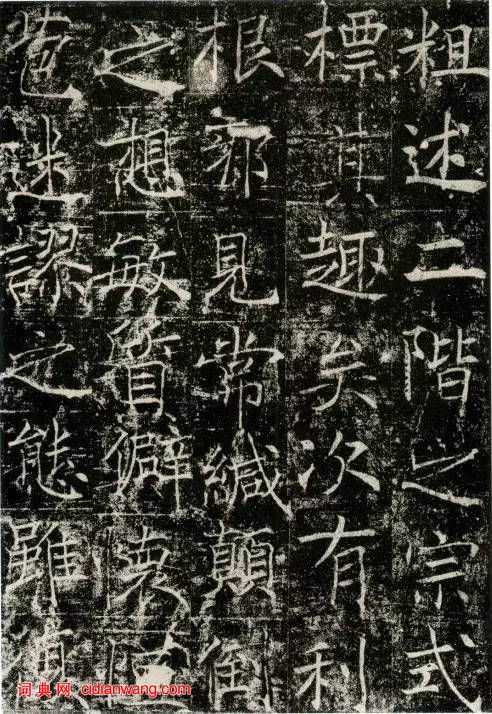 粗述二階之宗式
標其趣矣次有利
根邪見常緘顛倒
之想敏質僻
苞迷謬之態雖
词典网:cidianwang.com